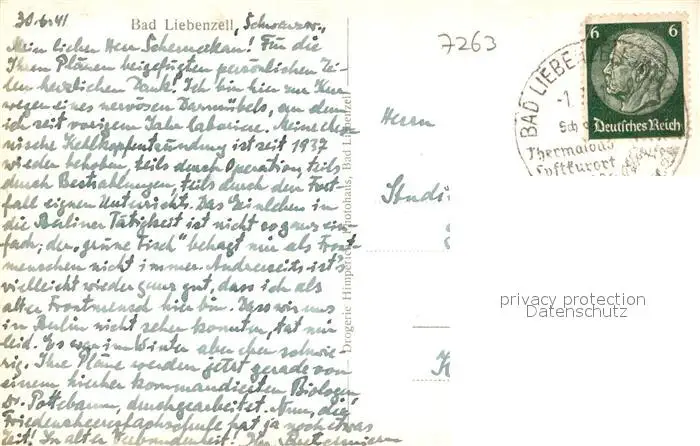 30.6.41
Bad Liebenzell, Schwarzw.,
Mein lieber Herr Schemeckau! Für die
Ihren Plänen beigefügten persönlichen Zei-
len herzlichen Dank! Ich bin hier zur Kur
wegen eines nervösen Darmübels, an dem
ich seit vorigem Jahr laboriere. Meine chro-
nische Kehlkopfentzündung ist seit 1937
wieder behoben, teils durch Operation, teils
durch Bestrahlungen, teils durch den Fort-
fall eignen Unterrichts. Das Einleben in
die Berliner Tätigkeit ist nicht so ganz ein-
fach; der „grüne Tisch" behagt mir als Front-
menschen nicht immer. Andrerseits ist's
vielleicht wieder ganz gut, dass ich als
alter Frontmensch hier bin. Dass wir uns
in Berlin nicht sehen konnten, tat mir
leid. Es war im Winter aber eher schwie-
rig. Ihre Pläne werden jetzt gerade von
einem hierher kommandierten Biologen
Dr. Pottebaum, durchgearbeitet. Nun, die
Friedensheeresfachschule hat ja noch etwas
Zeit! In alter Verbundenheit! Ihr
Drogerie Himperich, Photohaus, Bad Liebenzell
7263
Herrn
Studi
K
6 6
Deutsches Reich
BAD LIEBE
Thermalbad
Luftkurort
privacy protection
Datenschutz